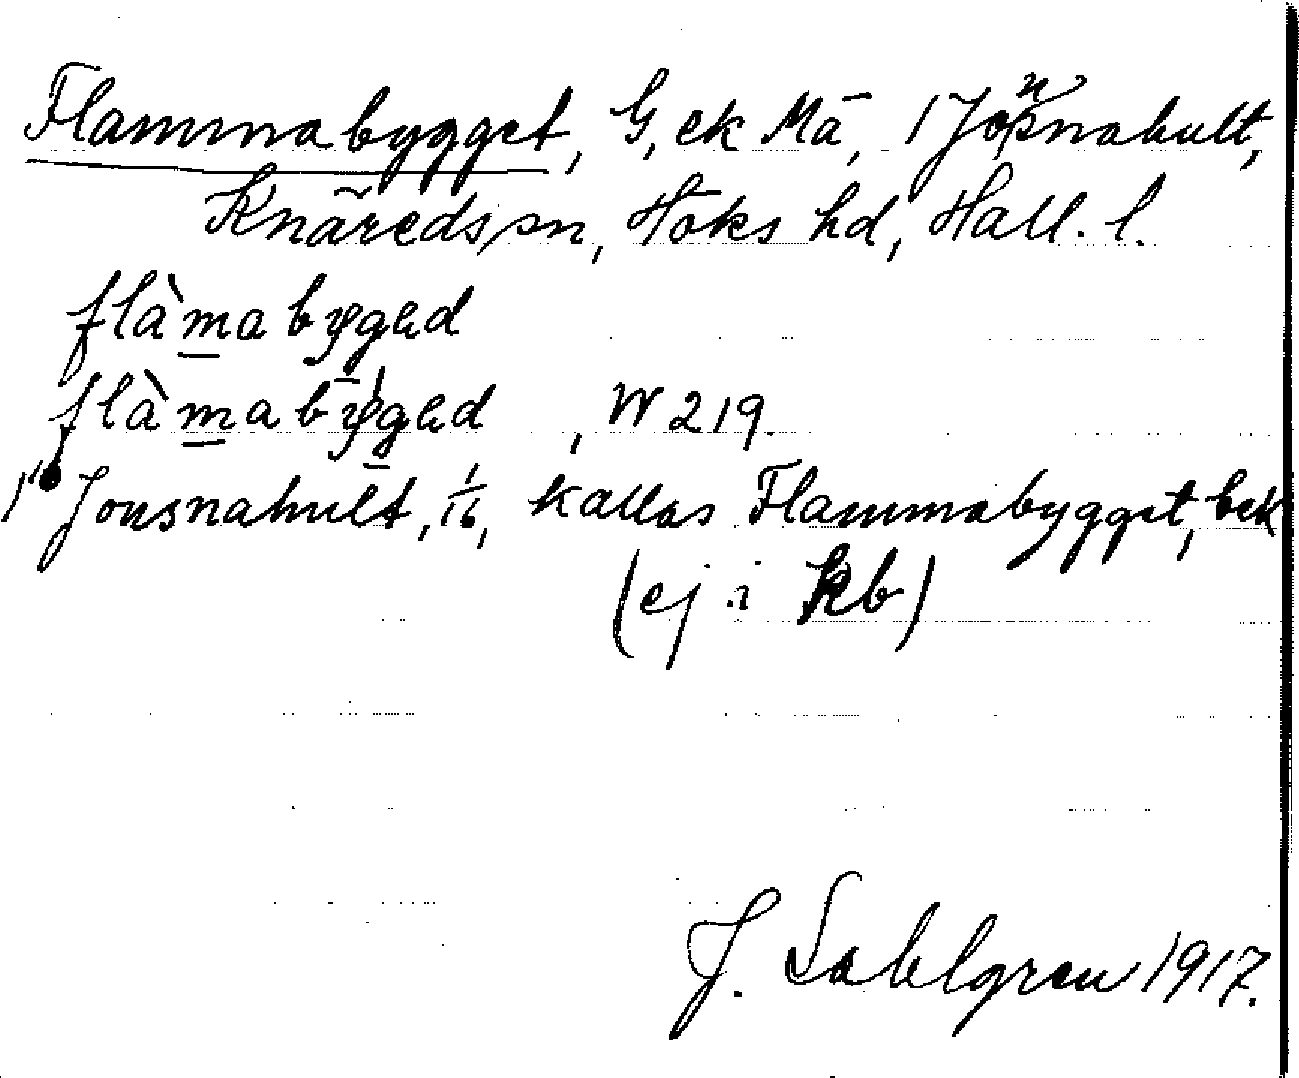 Flammabygget, G, ek Mā, 1 Jonsnahult,
Knäreds sn, Höks hd, Hall. l.
flàmabygəd
flàmabygəd, W 219.
1 Jonsnahult, 1/16, kallas Flammabygget, bek
(ej i kb)
J. Sahlgren 1917.